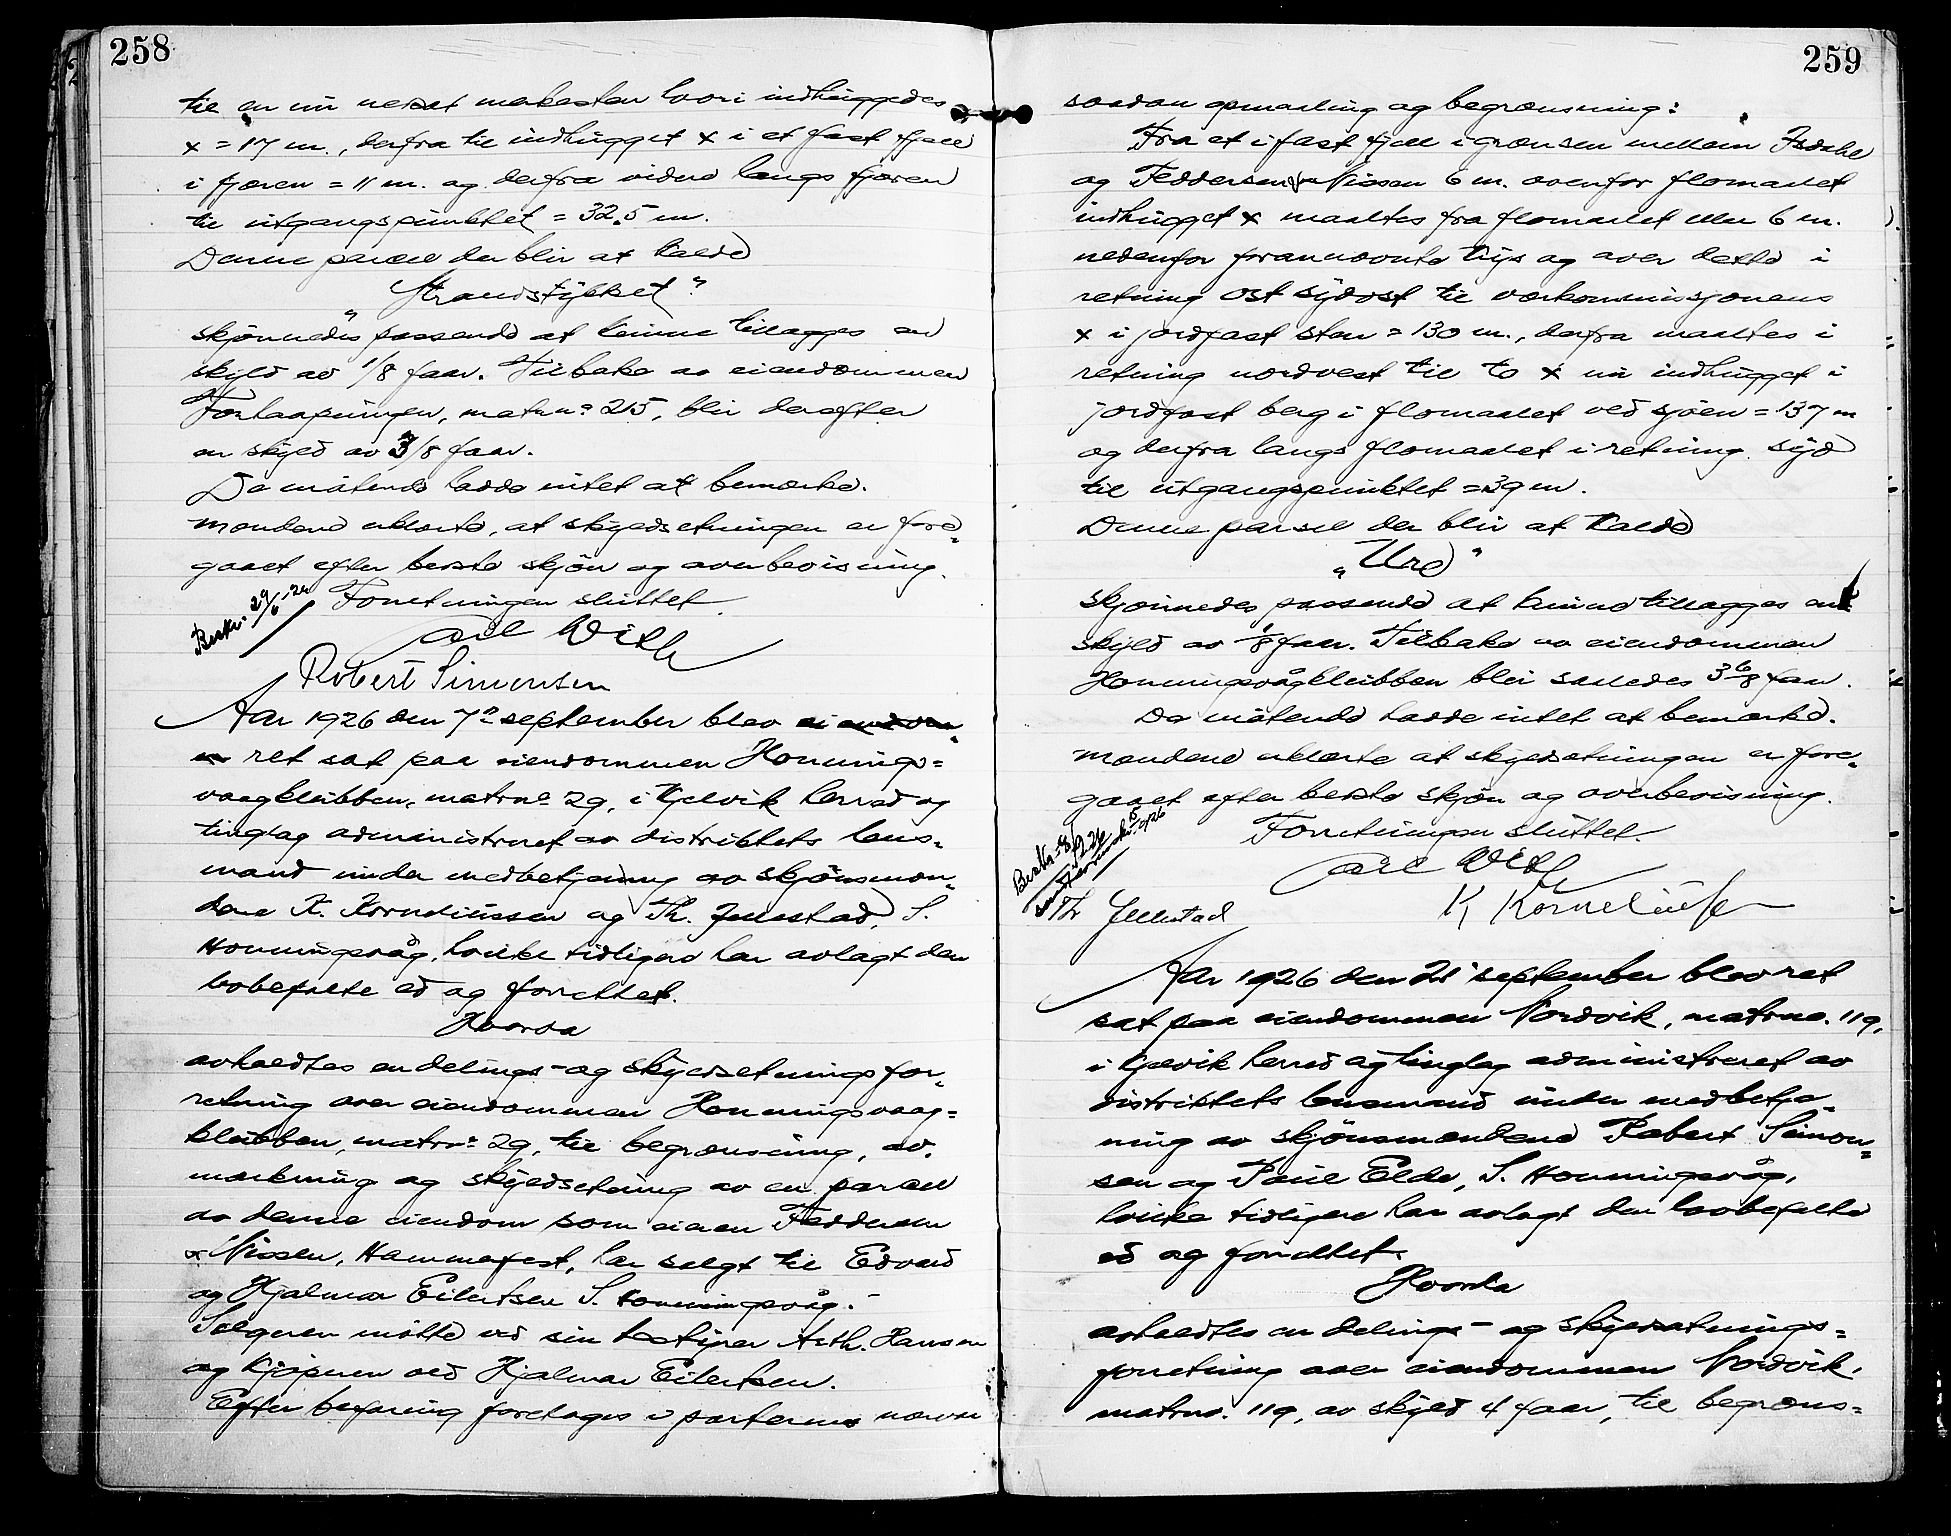 258
til en nu nedsat merkesten hvori indhuggedes
x = 17 m., derfra til indhugget x i et fast fjell
i fjæren = 11 m. og derfra videre langs fjæren
til utgangspunktet = 32.5 m.
Denne parcel der blir at kalde
"Strandstykket"
skjønnedes passende at kunne tillægges en
skyld av 1/8 faar. Tilbake av eiendommen
matrno 215, blir derefter
en skyld av 3/8 faar.
De møtende hadde intet at bemærke.
Mændene erklærte, at skyldsetningen er fore-
gaaet efter bedste skjøn og overbevisning.
Forretningen sluttet.
Carl With
Robert Simonsen
Aar 1926 den 7de september blev
ret sat paa eiendommen Honnings-
vaagklubben, matrno 29, i Kjelvik herred og
tinglag administreret av distriktets lens-
mand under medbetjening av skjønsmæn-
dene K. Korneliussen og Th. Jellestad, S.
Honningsvåg, hvilke tidligere har avlagt den
lovbefalte ed og forrettet.
Hvorda
avholdtes en delings- og skyldsetningsfor-
retning over eiendommen Honningsvaag-
klubben, matrno 29, til begrænsning, av-
merkning og skyldsetning av en parcel
av denne eiendom som eieren Feddersen
& Nissen, Hammerfest, har solgt til Edvard
og Hjalmar Eilertsen S. Honningsvåg.
Selgeren møtte ved sin bestyrer Arth. Hansen
og kjøperen ved Hjalmar Eilertsen.
Efter befaring foretages i parternes nærvær
259
saadan opmaaling og begrænsning:
Fra et i fast fjell i grænsen mellem Isdahl
og Feddersen & Nissen 6 m. ovenfor flomaalet
indhugget x maaltes fra flomaalet eller 6 m.
nedenfor forannævnte krys og over dette i
retning ost sydost til
x i jordfast sten = 130 m., derfra maaltes i
retning nordvest til to x nu indhugget i
jordfast berg i flomaalet ved sjøen = 137 m
og derfra langs flomaalet i retning syd
til utgangspunktet = 39 m.
Denne parsel der blir at kalde
"Urd"
skjønnedes passende at kunne tillægges en
skyld av 1/8 faar. Tilbake av eiendommen
Honningsvågklubben blir saaledes 3 6/8 faar.
De møtende hadde intet at bemærke.
Mændene erklærte at skyldsetningen er fore-
gaaet efter bedste skjøn og overbevisning.
Forretningen sluttet.
Carl With
Th Jellestad K Korneliussen
Aar 1926 den 21 september blev ret
sat paa eiendommen Nordvik, matrno. 119,
i Kjelvik herred og tinglag administreret av
distriktets lensmand under medbetje-
ning av skjønsmændene Robert Simon-
sen og Paul Elde, S. Honningsvåg,
hvilke tidligere har avlagt den lovbefalte
ed og forrettet.
Hvorda
avholdtes en delings- og skyldsetnings-
forretning over eiendommen Nordvik,
matrno. 119, av skyld 4 faar, til begræns-